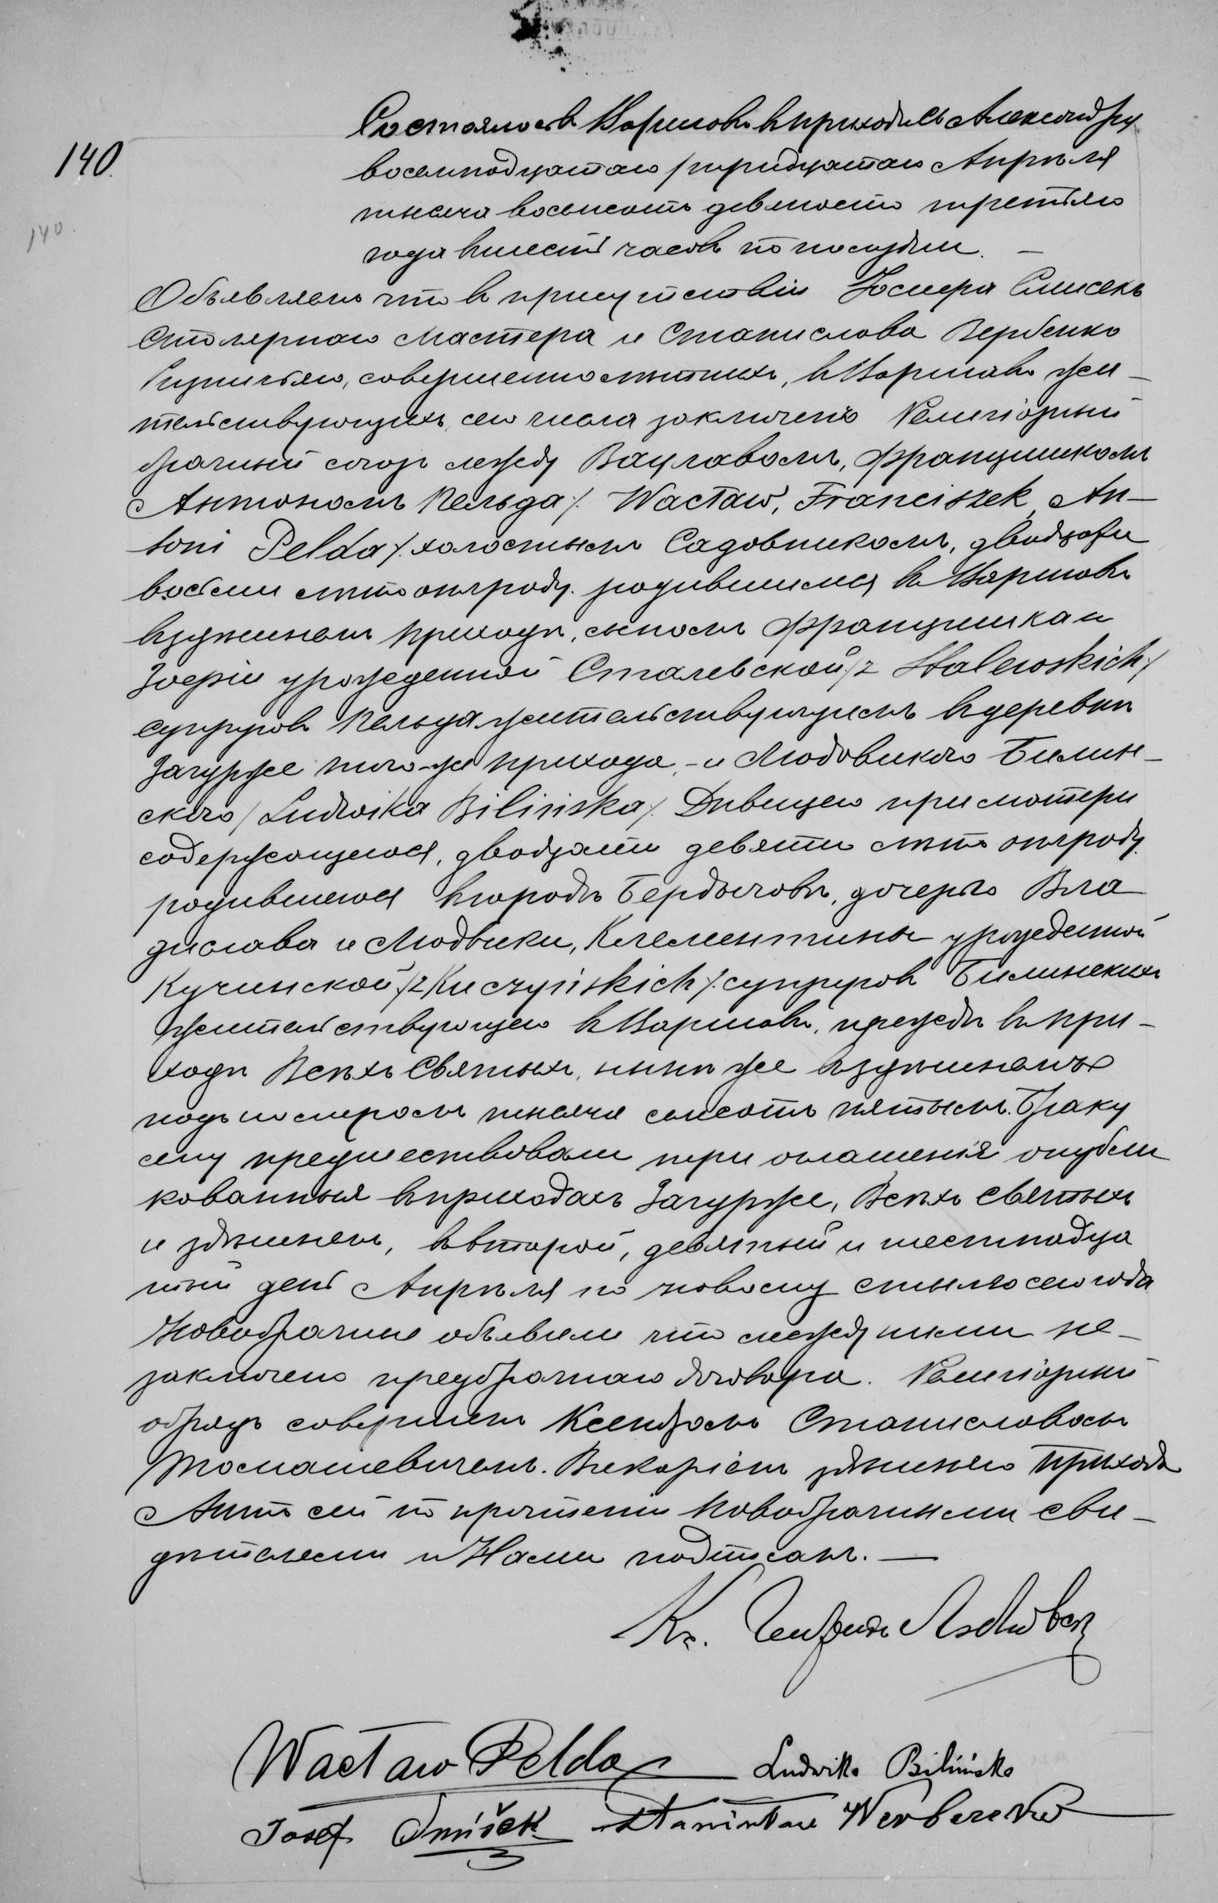 140.
140.
Состоялось въ Варшавѣ въ приходѣ Св Александра
восемнадцатаго /тридцатаго Апрѣля
тысяча восемьсотъ девяносто третьяго
года въ шесть часовъ по полудни. —
Объявляемъ что въ присутствіи Іосифа Смисекъ
Столярнаго Мастера и Станислава Вербенко
совершеннолѣтнихъ, въ Варшавѣ жи-
тельствующихъ, сего числа заключенъ Религіозный
брачный союзъ между Вацлавомъ, Францишкомъ
Антономъ Пельда /: Wacław, Franciszek An-
toni Pelda /: холостымъ Садовникомъ, двадцати
восьми лѣтъ отъ роду родившимся въ Варшавѣ
въ здѣшнемъ приходѣ, сыномъ Францишка и
Зофіи урожденной Сталевской /z Stalewskich /
супруговъ Пельда жительствующимъ въ деревнѣ
Загурже того-же прихода, – и Людовикою Билин-
скою / Ludwika Bilińska /. Дѣвицею при матери
содержащеюся, двадцати девяти лѣтъ отъ роду
родившеюся въ городѣ Бердычовѣ, дочерью Вла
дислава и Людвики, Клементины урожденной
Кучинской /z Kuczyńskich /: супруговъ Билинскихъ
жительствующею въ Варшавѣ, прежде въ при-
ходѣ Всѣхъ Святыхъ, нынѣ же въ здѣшнемъ
подъ номеромъ тысяча семьсотъ пятымъ. Браку
сему предшествовали три оглашенія опубли
кованныя въ приходахъ Загурже, Всѣхъ Святыхъ
и здѣшнемъ, въ второй, девятый и шестнадца
тый день Апрѣля по новому стилю сего года
Новобрачные объявили что между ними не-
заключено предбрачнаго договора. Религіозный
обрядъ совершенъ Ксендзомъ Станиславомъ
Томашевичемъ. Викаріемъ здѣшняго прихода
Актъ сей по прочтеніи новобрачными сви-
дѣтелями и Нами подписанъ. —
Кс.
Wacław Pelda Ludwika Bilińska
Josef Smíšek Stanisław